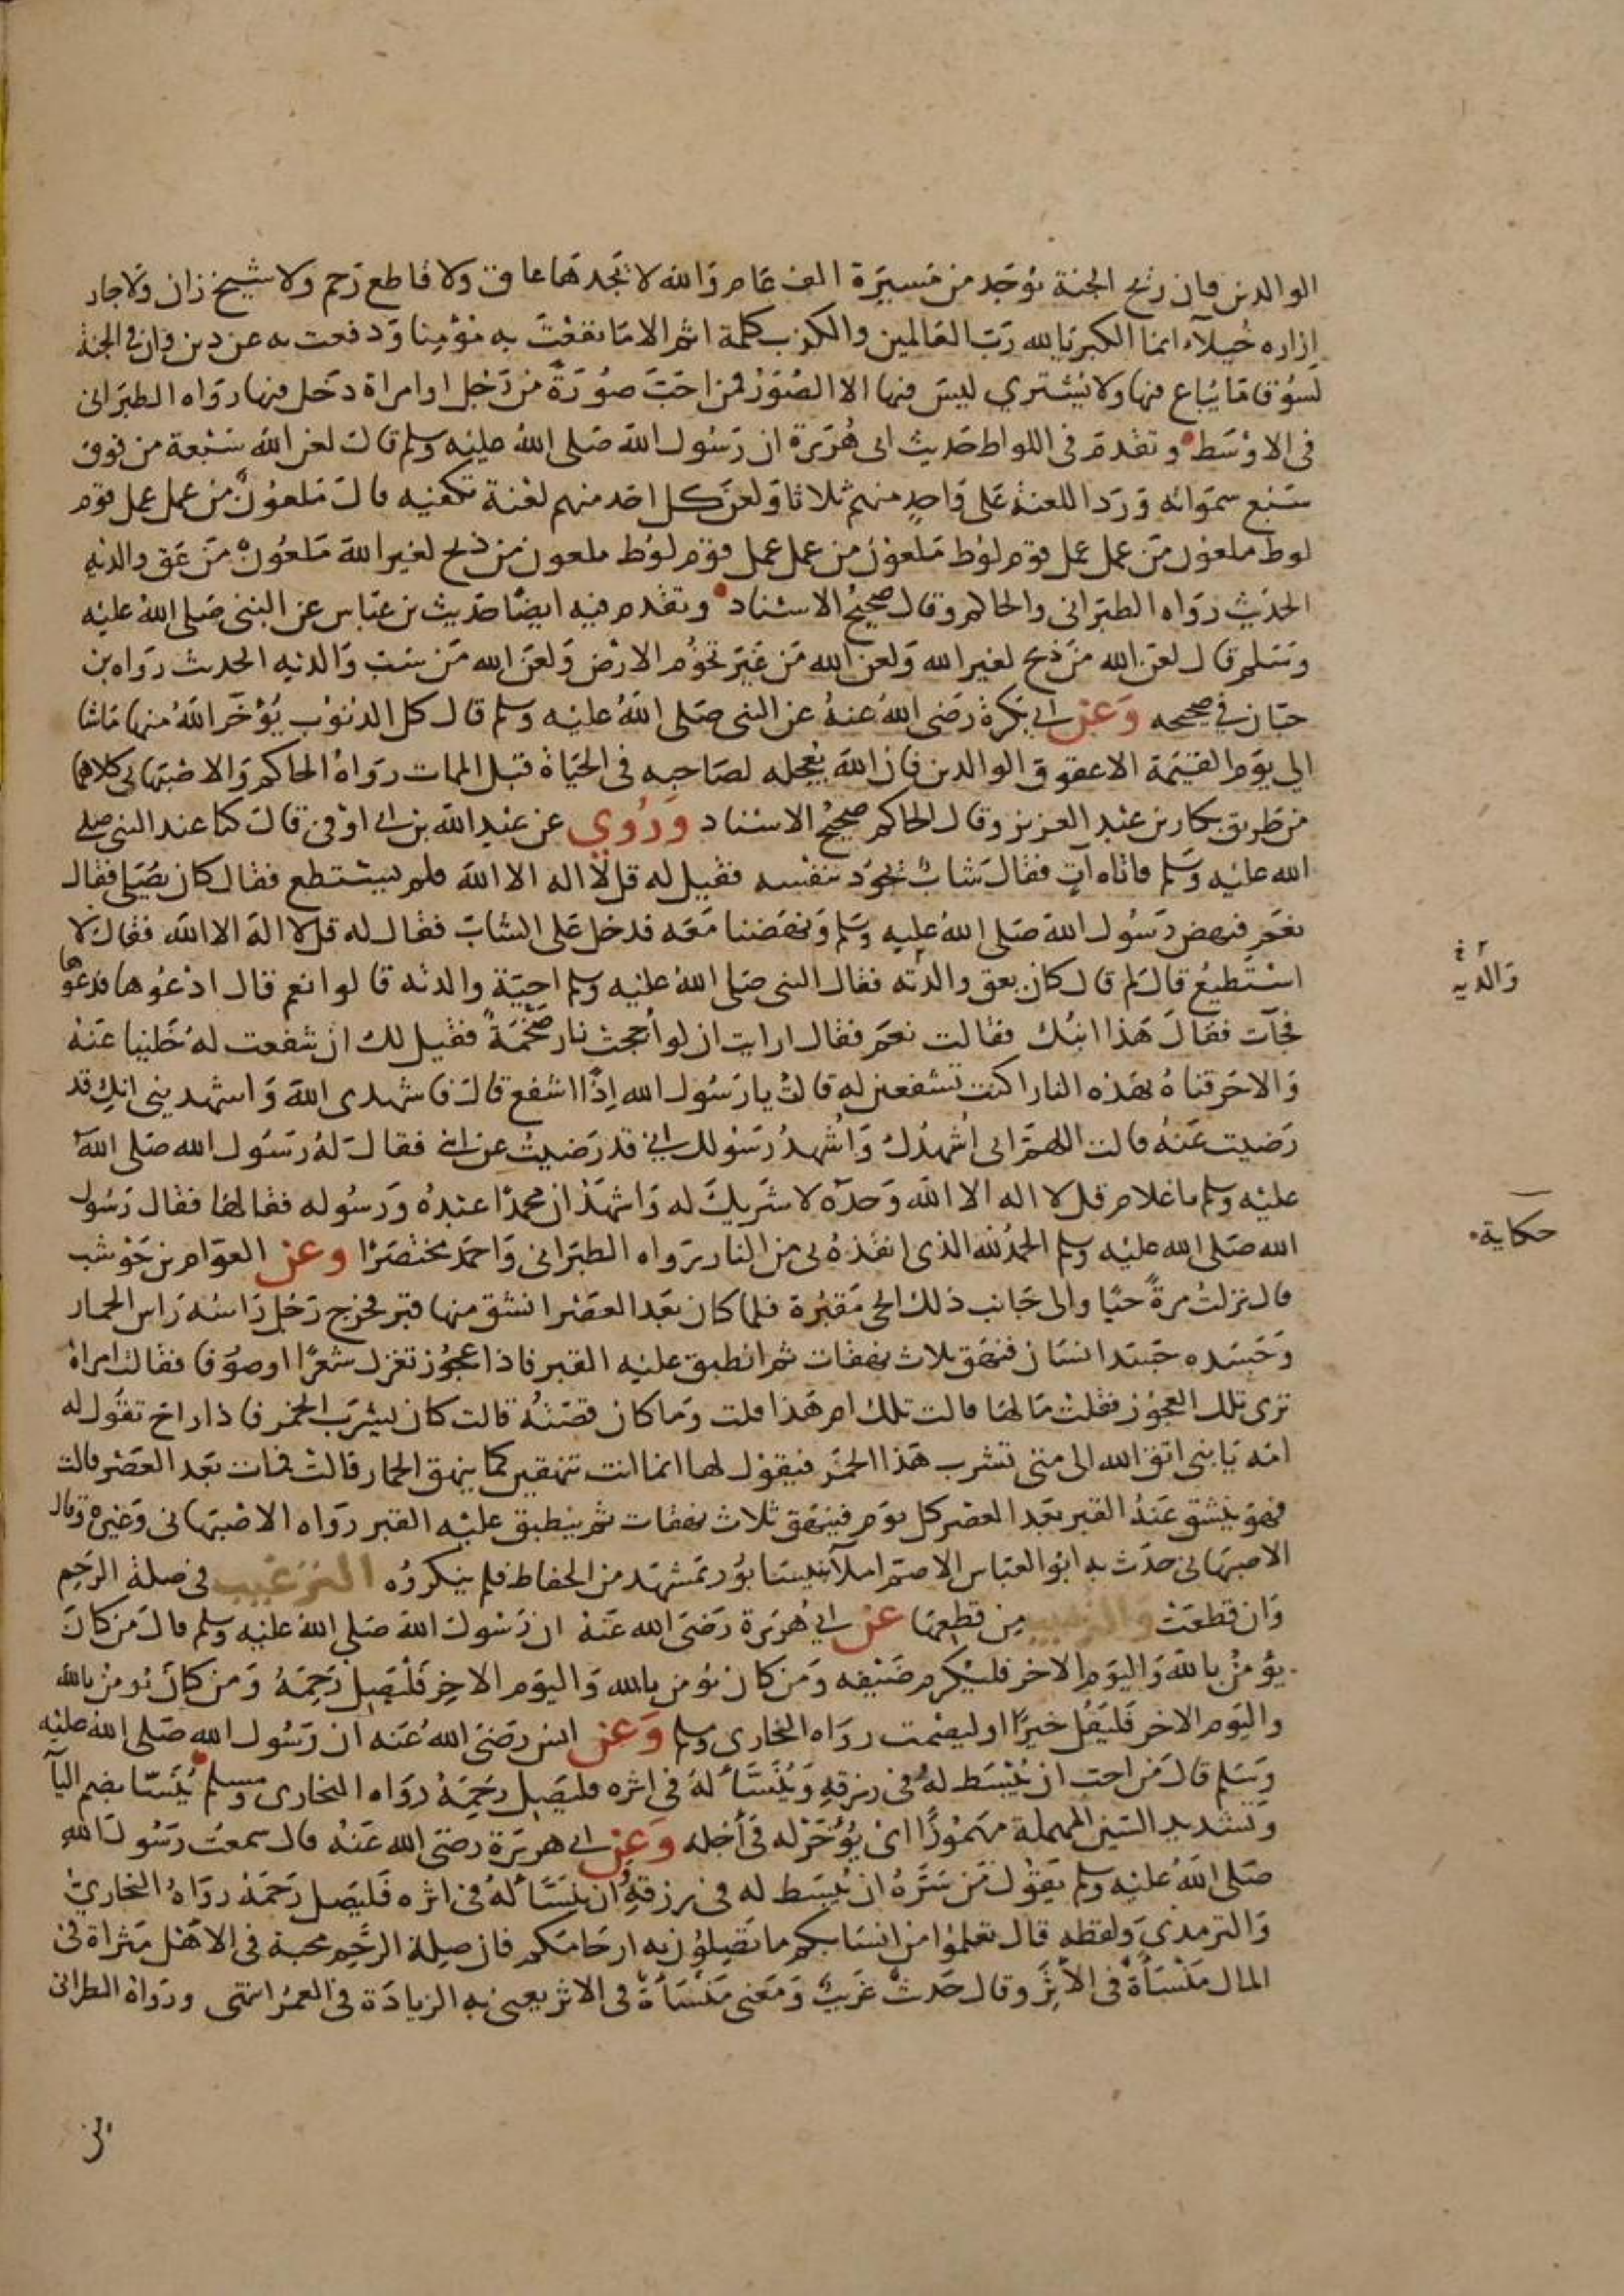 الوالدين فان ريح الجنة توجد من مسيرة الف عام والله لا يجدها عاق ولا قاطع رحم ولا شيخ زان ولا جار
ازاره خيلآء انما الكبرياء لله رب العالمين والكذب كلمة اثم الا ما نفعت به مؤمنا ودفعت به عن دين وان في الجنة
لسوقا ما يباع فيها ولا يشتري ليس فيها الا الصور فمن احب صورة من رجل او امراة دخل فيها رواه الطبراني
في الاوسط وتقدم في اللواط حديث ابي هريرة ان رسول الله صلى الله عليه وسلم قال لعن الله سبعة من فوق
سبع سمواته ورد اللعنة على واحد منهم ثلاثا ولعن كل احد منهم لعنة تكفيه قال ملعون من عمل عمل قوم
لوط ملعون من عمل عمل قوم لوط ملعون من عمل عمل قوم لوط ملعون من ذبح لغير الله ملعون من عق والديه
الحديث رواه الطبراني والحاكم وقال صحيح الاسناد وتقدم فيه ايضا حديث بن عباس عن النبي صلى الله عليه
وسلم قال لعن الله من ذبح لغير الله ولعن الله من غير تخوم الارض ولعن الله من سب والديه الحديث رواه بن
حبان في صحيحه وعن ابي بكرة رضي الله عنه عن النبي صلى الله عليه وسلم قال كل الذنوب يؤخر الله منها ماشا
الي يوم القيمة الا عقوق الوالدين فان الله يعجله لصاحبه في الحياة قبل الممات رواه الحاكم والاصبهاني كلاهما
من طريق بكار بن عبد العزيز وقال الحاكم صحيح الاسناد وروي عن عبد الله بن ابي اوفي قال كنا عند النبي صلي
الله عليه وسلم فاتاه آت فقال شاب يجود بنفسه فقيل له قل لا اله الا الله فلم يستطع فقال كان يصلي فقال
نعم فنهض رسول الله صلى الله عليه وسلم ونهضنا معه فدخل على الشاب فقال له قل لا اله الا الله فقال لا
استطيع قال لم قال كان يعق والدته فقال النبي صلى الله عليه وسلم احية والدته قالوا نعم قال ادعوها فدعوها
والديه
فجآت فقال هذا ابنك فقالت نعم فقال ارايت ان لو اججت نار ضخمة فقيل لك ان شفعت له خلينا عنه
والا حرقناه بهذه النار اكنت تشفعين له قالت يا رسول الله اذا اشفع قال فاشهدي الله واشهديني انك قد
رضيت عنه قالت اللهم اني اشهدك واشهد رسولك اني قد رضيت عن ابني فقال له رسول الله صلى الله
عليه وسلم يا غلام قل لا اله الا الله وحده لا شريك له واشهد ان محمدا عبده ورسوله فقالها فقال رسول
حكاية
الله صلى الله عليه وسلم الحمد لله الذي انقذه بي من النار رواه الطبراني واحمد مختصرا وعن العوام بن حوشب
قال نزلت مرة حيا والى جانب ذلك الحي مقبرة فلما كان بعد العصر انشق منها قبر فخرج رجل راسه راس الحمار
وجسده جسد انسان فنهق ثلاث نهقات ثم انطبق عليه القبر فاذا عجوز تغزل شعرا او صوفا فقالت امراة
تري تلك العجوز فقلت ما لها قالت تلك ام هذا قلت وما كان قصته قالت كان يشرب الخمر فاذا راح تقول له
امه يا بني اتق الله الى متى تشرب هذا الخمر فيقول لها انما انت تنهقين كما ينهق الحمار قالت فمات بعد العصر قالت
فهو ينشق عنه القبر بعد العصر كل يوم فينهق ثلاث نهقات ثم ينطبق عليه القبر رواه الاصبهاني وغيره وقال
الاصبهاني حدث به ابو العباس الاصم املآ بنيسابور بمشهد من الحفاظ فلم ينكروه الترغيب في صلة الرحم
وان قطعت والترهيب من قطعها عن ابي هريرة رضي الله عنه ان رسول الله صلى الله عليه وسلم قال من كان
يؤمن بالله واليوم الاخر فليكرم ضيفه ومن كان يؤمن بالله واليوم الاخر فليصل رحمه ومن كان يؤمن بالله
واليوم الاخر فليقل خيرا او ليصمت رواه البخاري ومسلم وعن انس رضي الله عنه ان رسول الله صلى الله عليه
وسلم قال من احب ان يبسط له في رزقه وينسأ له في اثره فليصل رحمه رواه البخاري ومسلم ينسا بضم اليآ
وتشديد السين المهملة مهموزا اي يؤخر له في أجله وعن ابي هريرة رضي الله عنه قال سمعت رسول الله
صلى الله عليه وسلم يقول من سره ان يبسط له في رزقه وان ينسأ له في اثره فليصل رحمه رواه البخاري
والترمذي ولفظه قال تعلموا من انسابكم ما تصلون به ارحامكم فان صلة الرحم محبة في الاهل مثراة في
المال منسأة في الأثر وقال حديث غريب ومعنى منسأة في الاثر يعني به الزيادة في العمر انتهى ورواه الطبراني